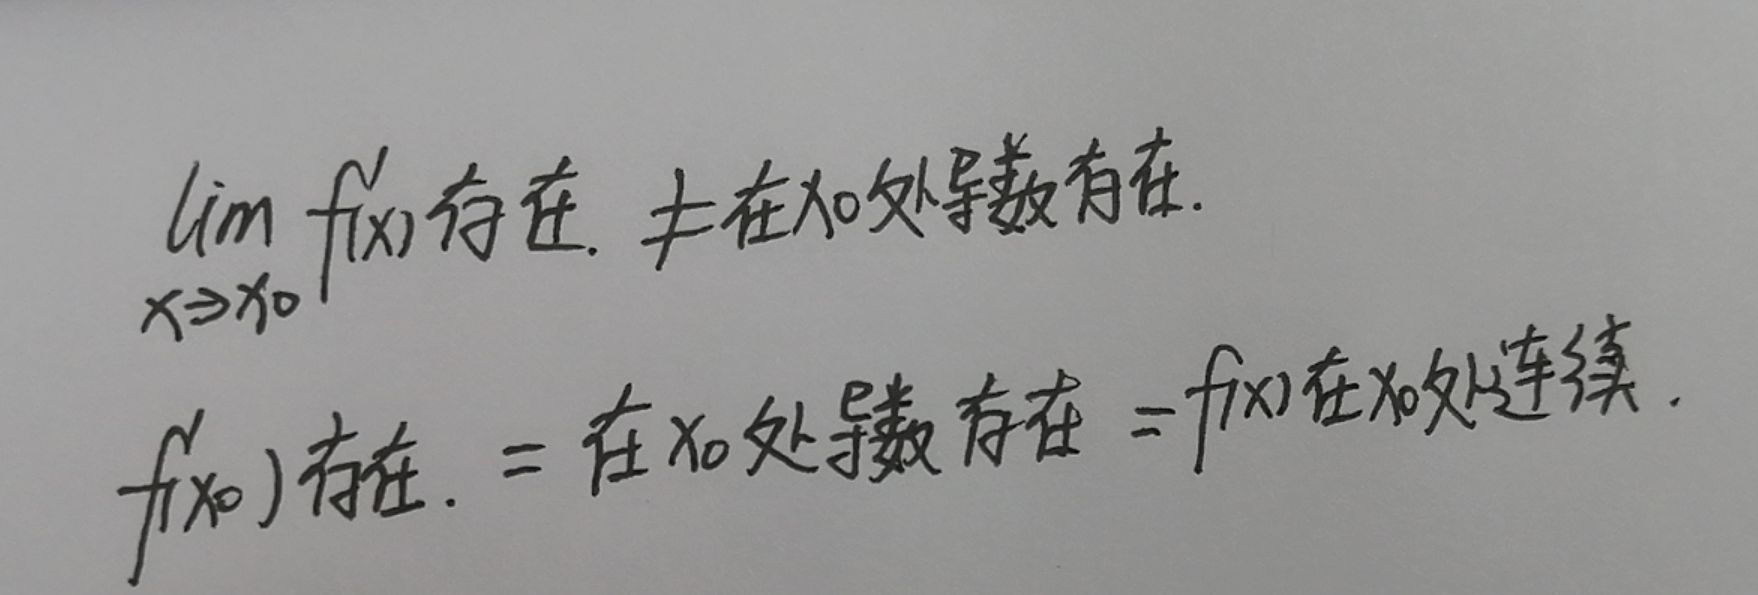 lim f'(x)存在. ≠在x0处导数存在.
x→x0
f'(x0)存在. = 在x0处导数存在 = f(x)在x0处连续.